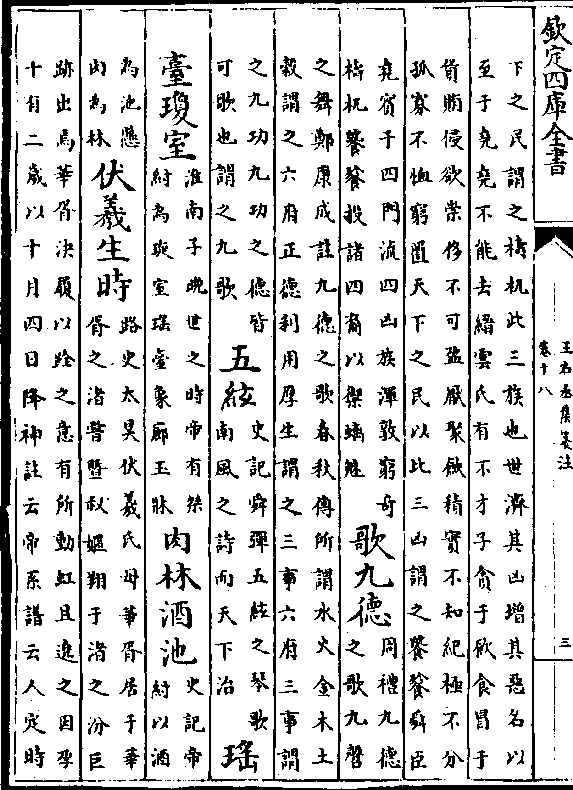 欽定四庫全書
王右丞集箋注
卷十八
三
下之民謂之檮杌此三族也世濟其凶增其惡名以
至于堯堯不能去縉雲氏有不才子貪于飲食冒于
貨賄侵欲崇侈不可盈厭聚斂積實不知紀極不分
孤寡不恤窮匱天下之民以比三凶謂之饕餮舜臣
堯賓于四門流四凶族渾敦窮奇
檮杌饕餮投諸四裔以禦螭魅
歌九德
周禮九德
之歌九磬
之舞鄭康成註九德之歌春秋傳所謂水火金木土
穀謂之六府正德利用厚生謂之三事六府三事謂
之九功九功之德皆
可歌也謂之九歌
五絃
史記舜彈五絃之琴歌
南風之詩而天下治
瑤
臺瓊室
淮南子晚世之時帝有桀
紂為琁室瑤臺象廊玉牀
肉林酒池
史記帝
紂以酒
為池懸
肉為林
伏羲生時
路史太昊伏羲氏母華胥居于華
胥之渚嘗暨叔嫗翔于渚之汾巨
跡出焉華胥決履以跲之意有所動虹且遶之因孕
十有二歲以十月四日降神註云帝系譜云人定時